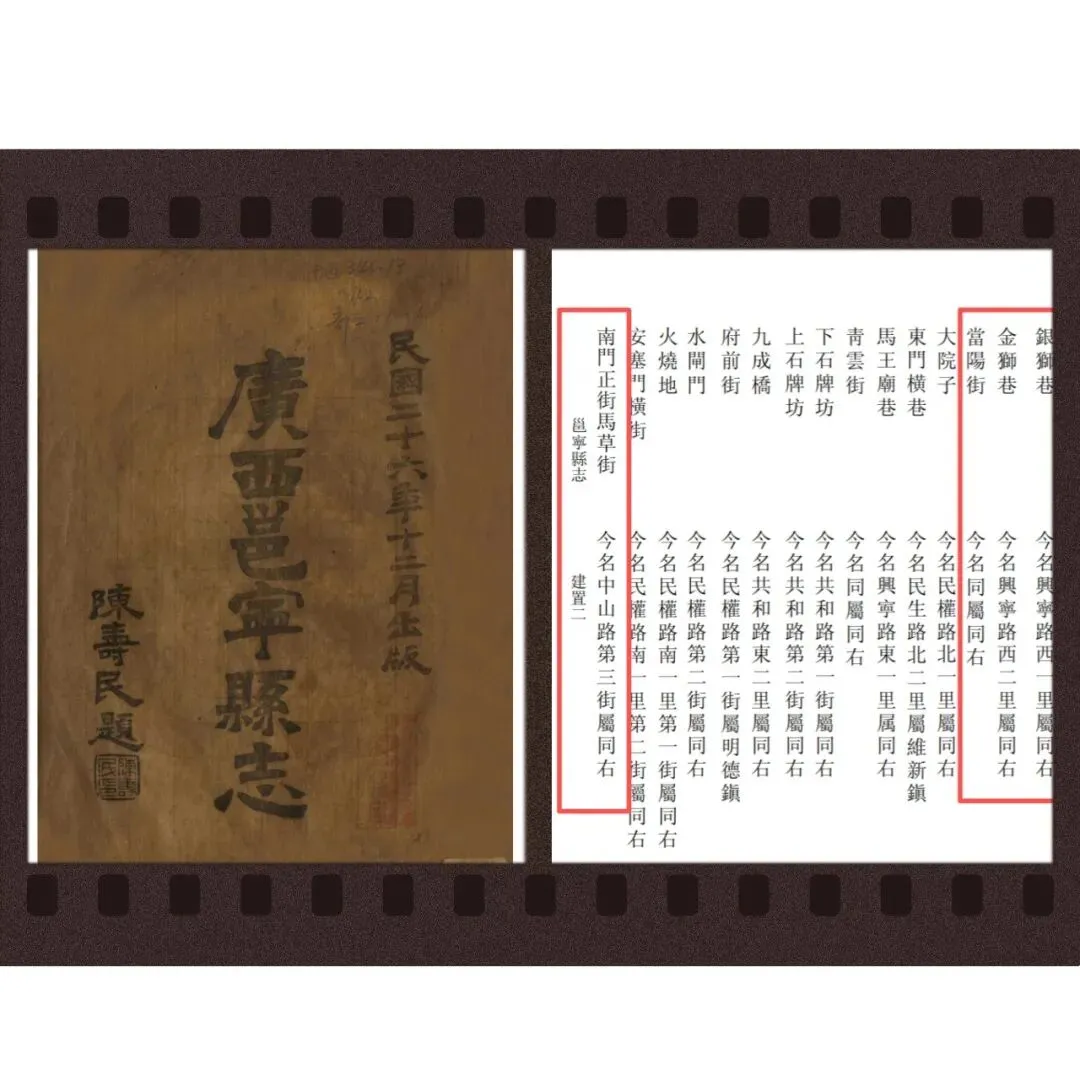 民國二十六年十二月出版
廣西邕寧縣志
陳壽民題
銀獅巷 今名興寧路西一里屬同右
金獅巷 今名興寧路西二里屬同右
當陽街 今名同屬同右
大院子 今名民權路北一里屬同右
東門橫巷 今名民生路北二里屬維新鎮
馬王廟巷 今名興寧路東一里属同右
靑雲街 今名同屬同右
下石牌坊 今名共和路第一街屬同右
上石牌坊 今名共和路第二街屬同右
九成橋 今名共和路東二里屬同右
府前街 今名民權路第一街屬明德鎮
水閘門 今名民權路第二街屬同右
火燒地 今名民權路南一里第一街屬同右
安塞門橫街 今名民權路南一里第二街屬同右
南門正街馬草街 今名中山路第三街屬同右
邕寧縣志 建置二